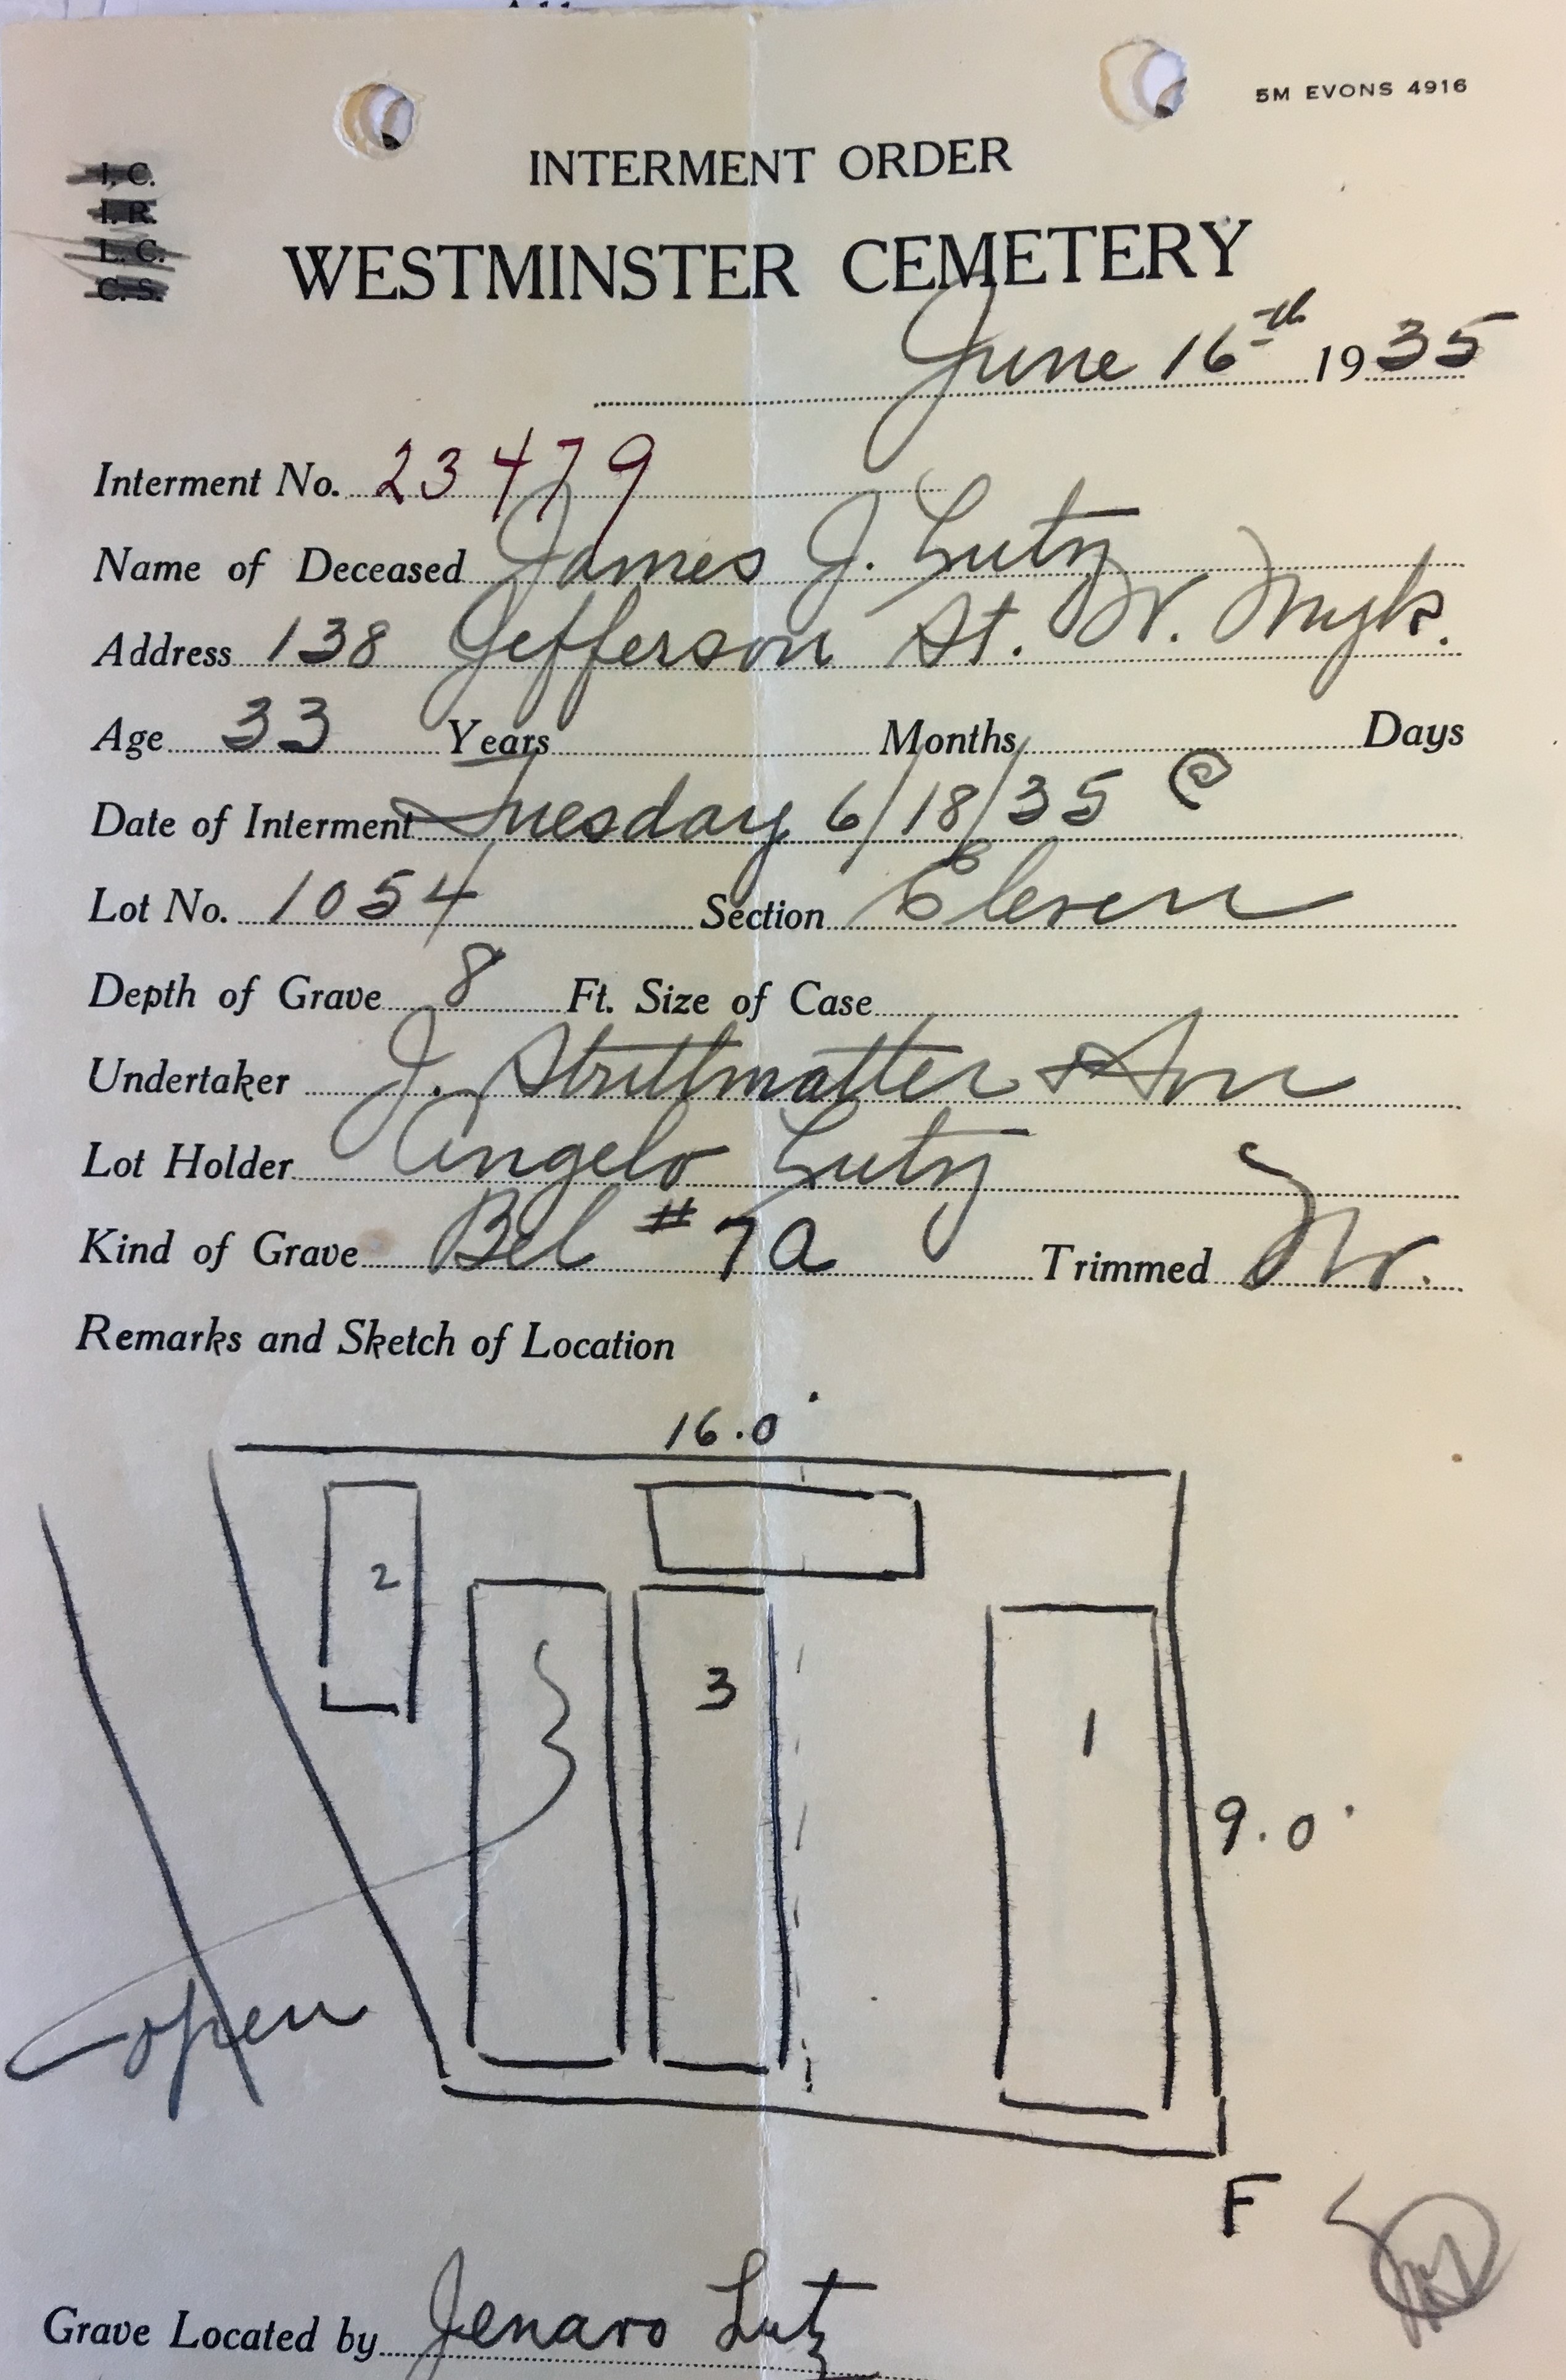 5M EVONS 4916
I. C.
I. R.
L. C.
C. S.
INTERMENT ORDER
WESTMINSTER CEMETERY
June 16th 1935
Interment No. 23479
Name of Deceased James J. Lutz
Address 138 Jefferson St. W. Myk.
Age 33 Years Months Days
Date of Interment Tuesday 6/18/35 @
Lot No. 1054 Section Eleven
Depth of Grave 8 Ft. Size of Case
Undertaker J. Strittmatter & Son
Lot Holder Angelo Lutz
Kind of Grave Bel #7a Trimmed
Remarks and Sketch of Location
16.0'
2
3
1
9.0'
open
F
Grave Located by Jenaro Lutz